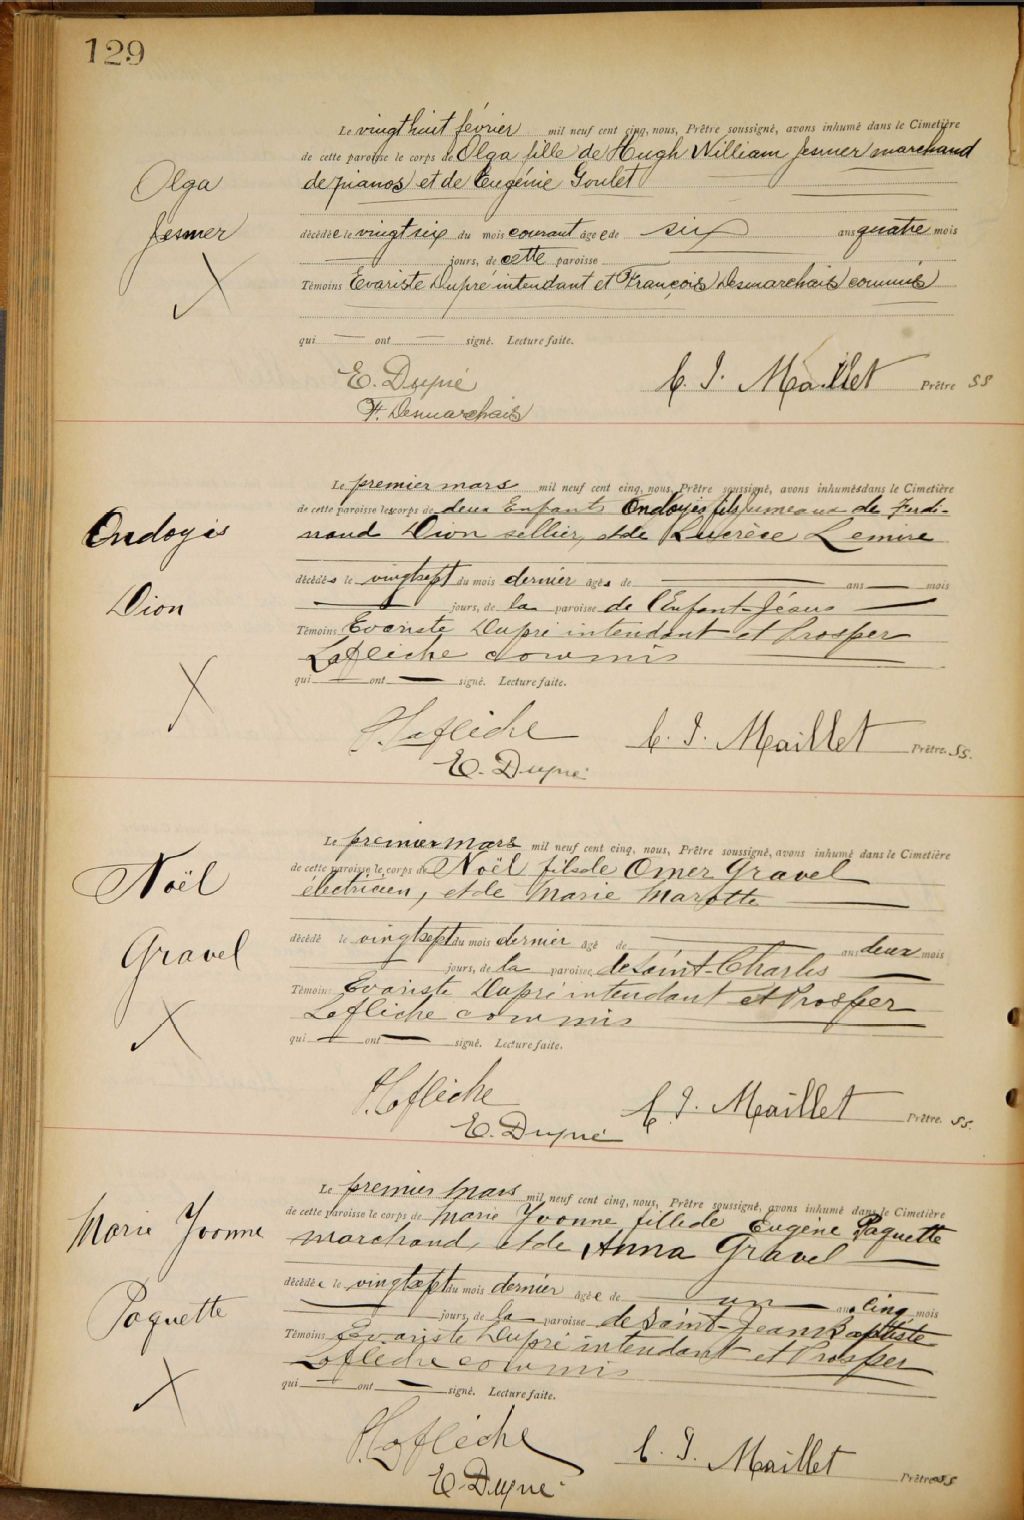 129
Le vingt huit février mil neuf cent cinq, nous, Prêtre soussigné, avons inhumé dans le Cimetière
de cette paroisse le corps de Olga fille de Hugh William Jesmer marchand
de pianos et de Eugénie Goulet
Olga
Jesmer
décédée le vingt six du mois courant âgée de six ans quatre mois
jours, de cette paroisse
Témoins Evariste Dupré intendant et François Desmarchais commis
qui ont signé. Lecture faite.
E. Dupré
C. I. Maillet Prêtre SS
F. Desmarchais
Le premier mars mil neuf cent cinq, nous, Prêtre soussigné, avons inhumés dans le Cimetière
de cette paroisse les corps de deux Enfants Ondoyés fils jumeaux de Ferdi-
nand Dion sellier, et de Lucrèce Lemire
Ondoyés
Dion
décédés le vingt sept du mois dernier âgés de ans mois
jours, de la paroisse de l'Enfant-Jésus
Témoins Evariste Dupré intendant et Prosper
Laflèche commis
qui ont signé. Lecture faite.
P. Laflèche
C. I. Maillet Prêtre SS.
E. Dupré
Le premier mars mil neuf cent cinq, nous, Prêtre soussigné, avons inhumé dans le Cimetière
de cette paroisse le corps de Noël fils de Omer Gravel
électricien, et de Marie Marotte
Noël
Gravel
décédé le vingt sept du mois dernier âgé de ans deux mois
jours, de la paroisse de Saint-Charles
Témoins Evariste Dupré intendant et Prosper
Laflèche commis
qui ont signé. Lecture faite.
P. Laflèche
C. I. Maillet Prêtre. SS.
E. Dupré
Le premier Mars mil neuf cent cinq, nous, Prêtre soussigné, avons inhumé dans le Cimetière
de cette paroisse le corps de Marie Yvonne fille de Eugène Paquette
marchand, et de Anna Gravel
Marie Yvonne
Paquette
décédée le vingt sept du mois dernier âgée de un an, cinq mois
jours, de la paroisse de Saint-Jean Baptiste
Témoins Evariste Dupré intendant et Prosper
Laflèche commis
qui ont signé. Lecture faite.
P. Laflèche
C. I. Maillet Prêtre SS
E. Dupré